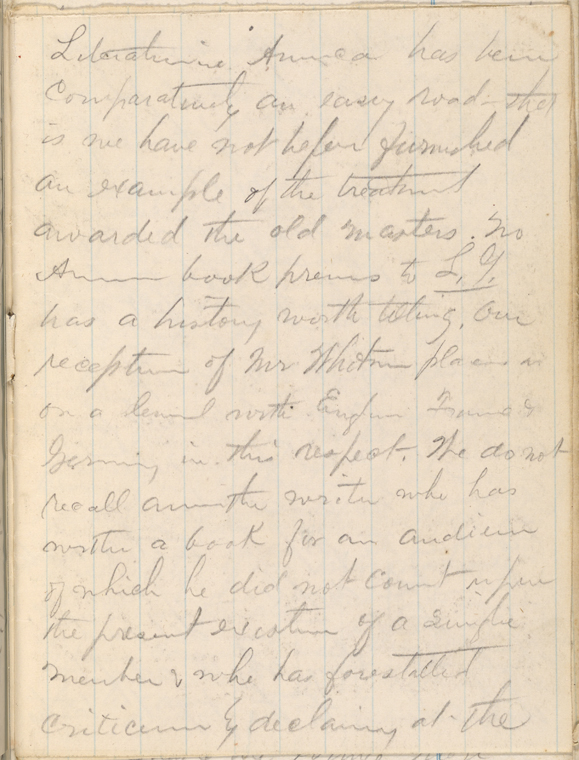 Literature in America has been
comparatively an easy road – that
is we have not before furnished
an example of the treatment
awarded the old masters. No
American book previous to L. G.
has a history worth telling. Our
reception of Mr Whitman places us
on a level with England France &
Germany in this respect. We do not
recall another writer who has
written a book for an audience
of which he did not count upon
the present existence of a single
member & who has forestalled
criticism by declaring at the